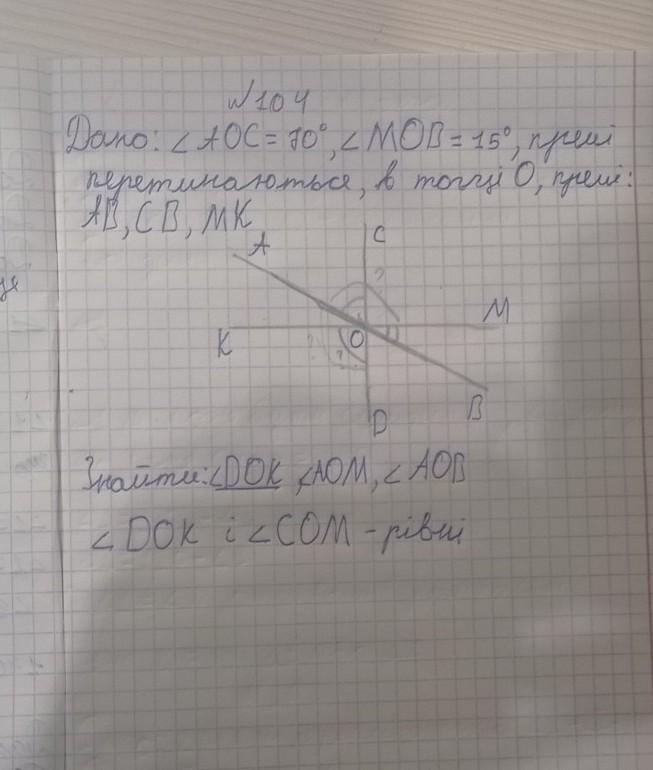 №104
Дано: ∠AOC = 70°, ∠MOB = 15°, прямі
перетинаються, в точці O, прямі:
AB, CB, MK
A
C
?
K
O
M
?
?
B
D
Знайти: ∠DOK, ∠AOM, ∠AOB
∠DOK і ∠COM - рівні